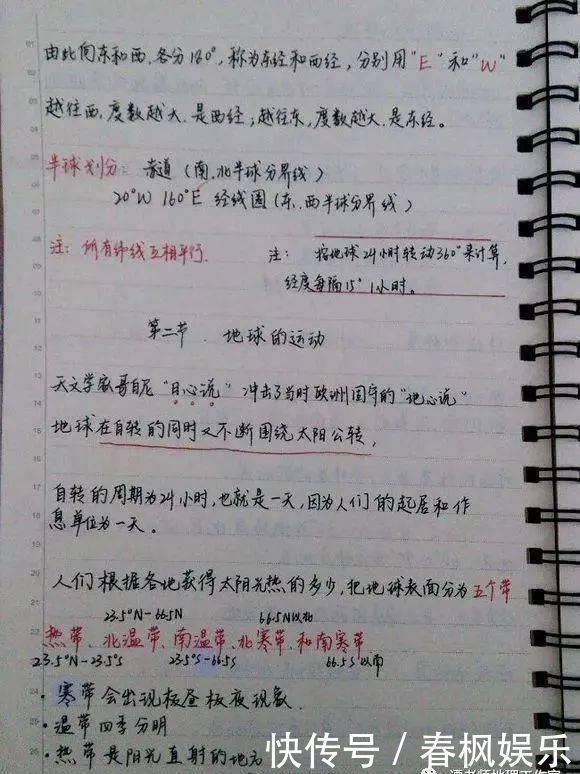 由此向东和西,各分180°,称为东经和西经,分别用"E"和"W"
越往西,度数越大,是西经;越往东,度数越大,是东经。
半球划分: 赤道(南.北半球分界线)
20°W 160°E 经线圈(东、西半球分界线)
注:所有纬线互相平行.
注: 按地球24小时转动360°来计算,
经度每隔15° 1小时。
第二节 . 地球的运动
天文学家哥白尼"日心说"冲击了当时欧洲固守的"地心说"
地球在自转的同时又不断围绕太阳公转,
自转的周期为24小时,也就是一天,因为人们的起居和作
息单位为一天。
人们根据各地获得太阳光热的多少,把地球表面分为五个带
23.5°N-66.5N 66.5N以北
热带、北温带、南温带、北寒带、和南寒带
23.5°N-23.5°S 23.5°S-66.5S 66.5S以南
· 寒带会出现极昼极夜现象.
· 温带四季分明
· 热带是阳光直射的地方
快传号/春枫娱乐